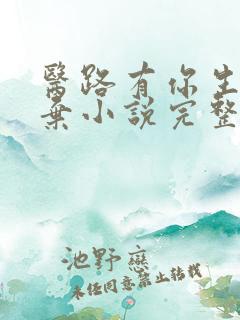 醫路有你生
棄小說完整
池野戀
未任同意禁止转载